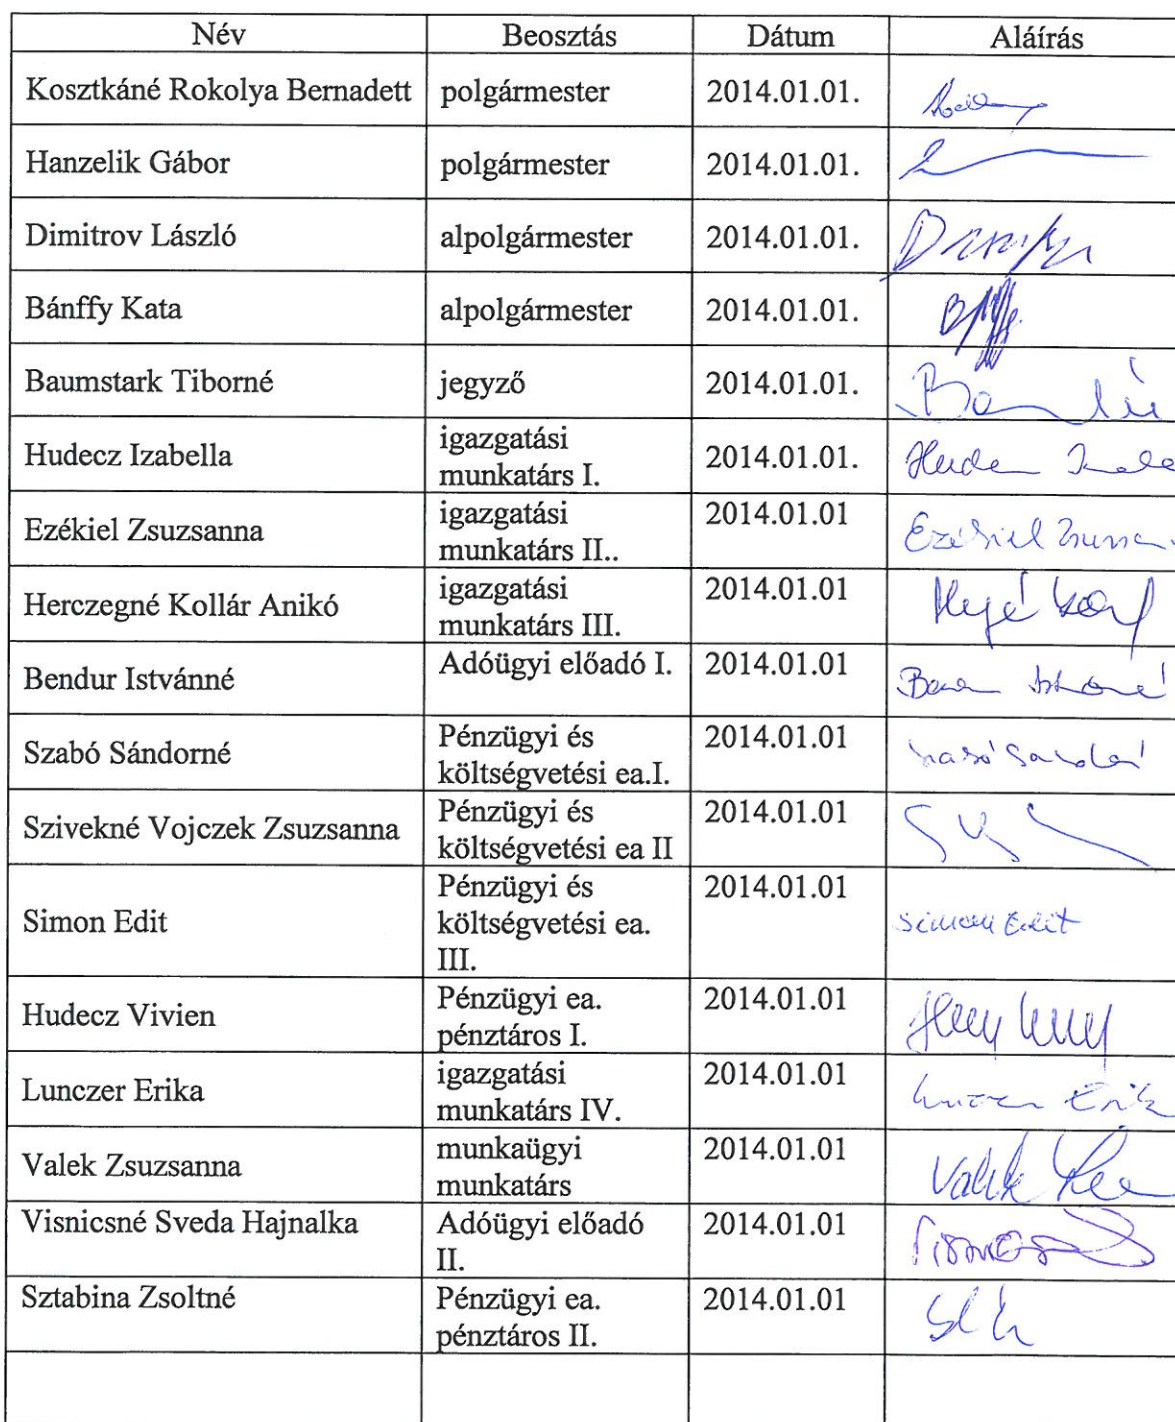 Név Beosztás Dátum Aláírás
Kosztkáné Rokolya Bernadett polgármester 2014.01.01.
Hanzelik Gábor polgármester 2014.01.01.
Dimitrov László alpolgármester 2014.01.01.
Bánffy Kata alpolgármester 2014.01.01.
Baumstark Tiborné jegyző 2014.01.01.
Hudecz Izabella igazgatási munkatárs I. 2014.01.01.
Ezékiel Zsuzsanna igazgatási munkatárs II.. 2014.01.01
Herczegné Kollár Anikó igazgatási munkatárs III. 2014.01.01
Bendur Istvánné Adóügyi előadó I. 2014.01.01
Szabó Sándorné Pénzügyi és költségvetési ea.I. 2014.01.01
Szivekné Vojczek Zsuzsanna Pénzügyi és költségvetési ea II 2014.01.01
Simon Edit Pénzügyi és költségvetési ea. III. 2014.01.01 Simon Edit
Hudecz Vivien Pénzügyi ea. pénztáros I. 2014.01.01
Lunczer Erika igazgatási munkatárs IV. 2014.01.01
Valek Zsuzsanna munkaügyi munkatárs 2014.01.01
Visnicsné Sveda Hajnalka Adóügyi előadó II. 2014.01.01
Sztabina Zsoltné Pénzügyi ea. pénztáros II. 2014.01.01